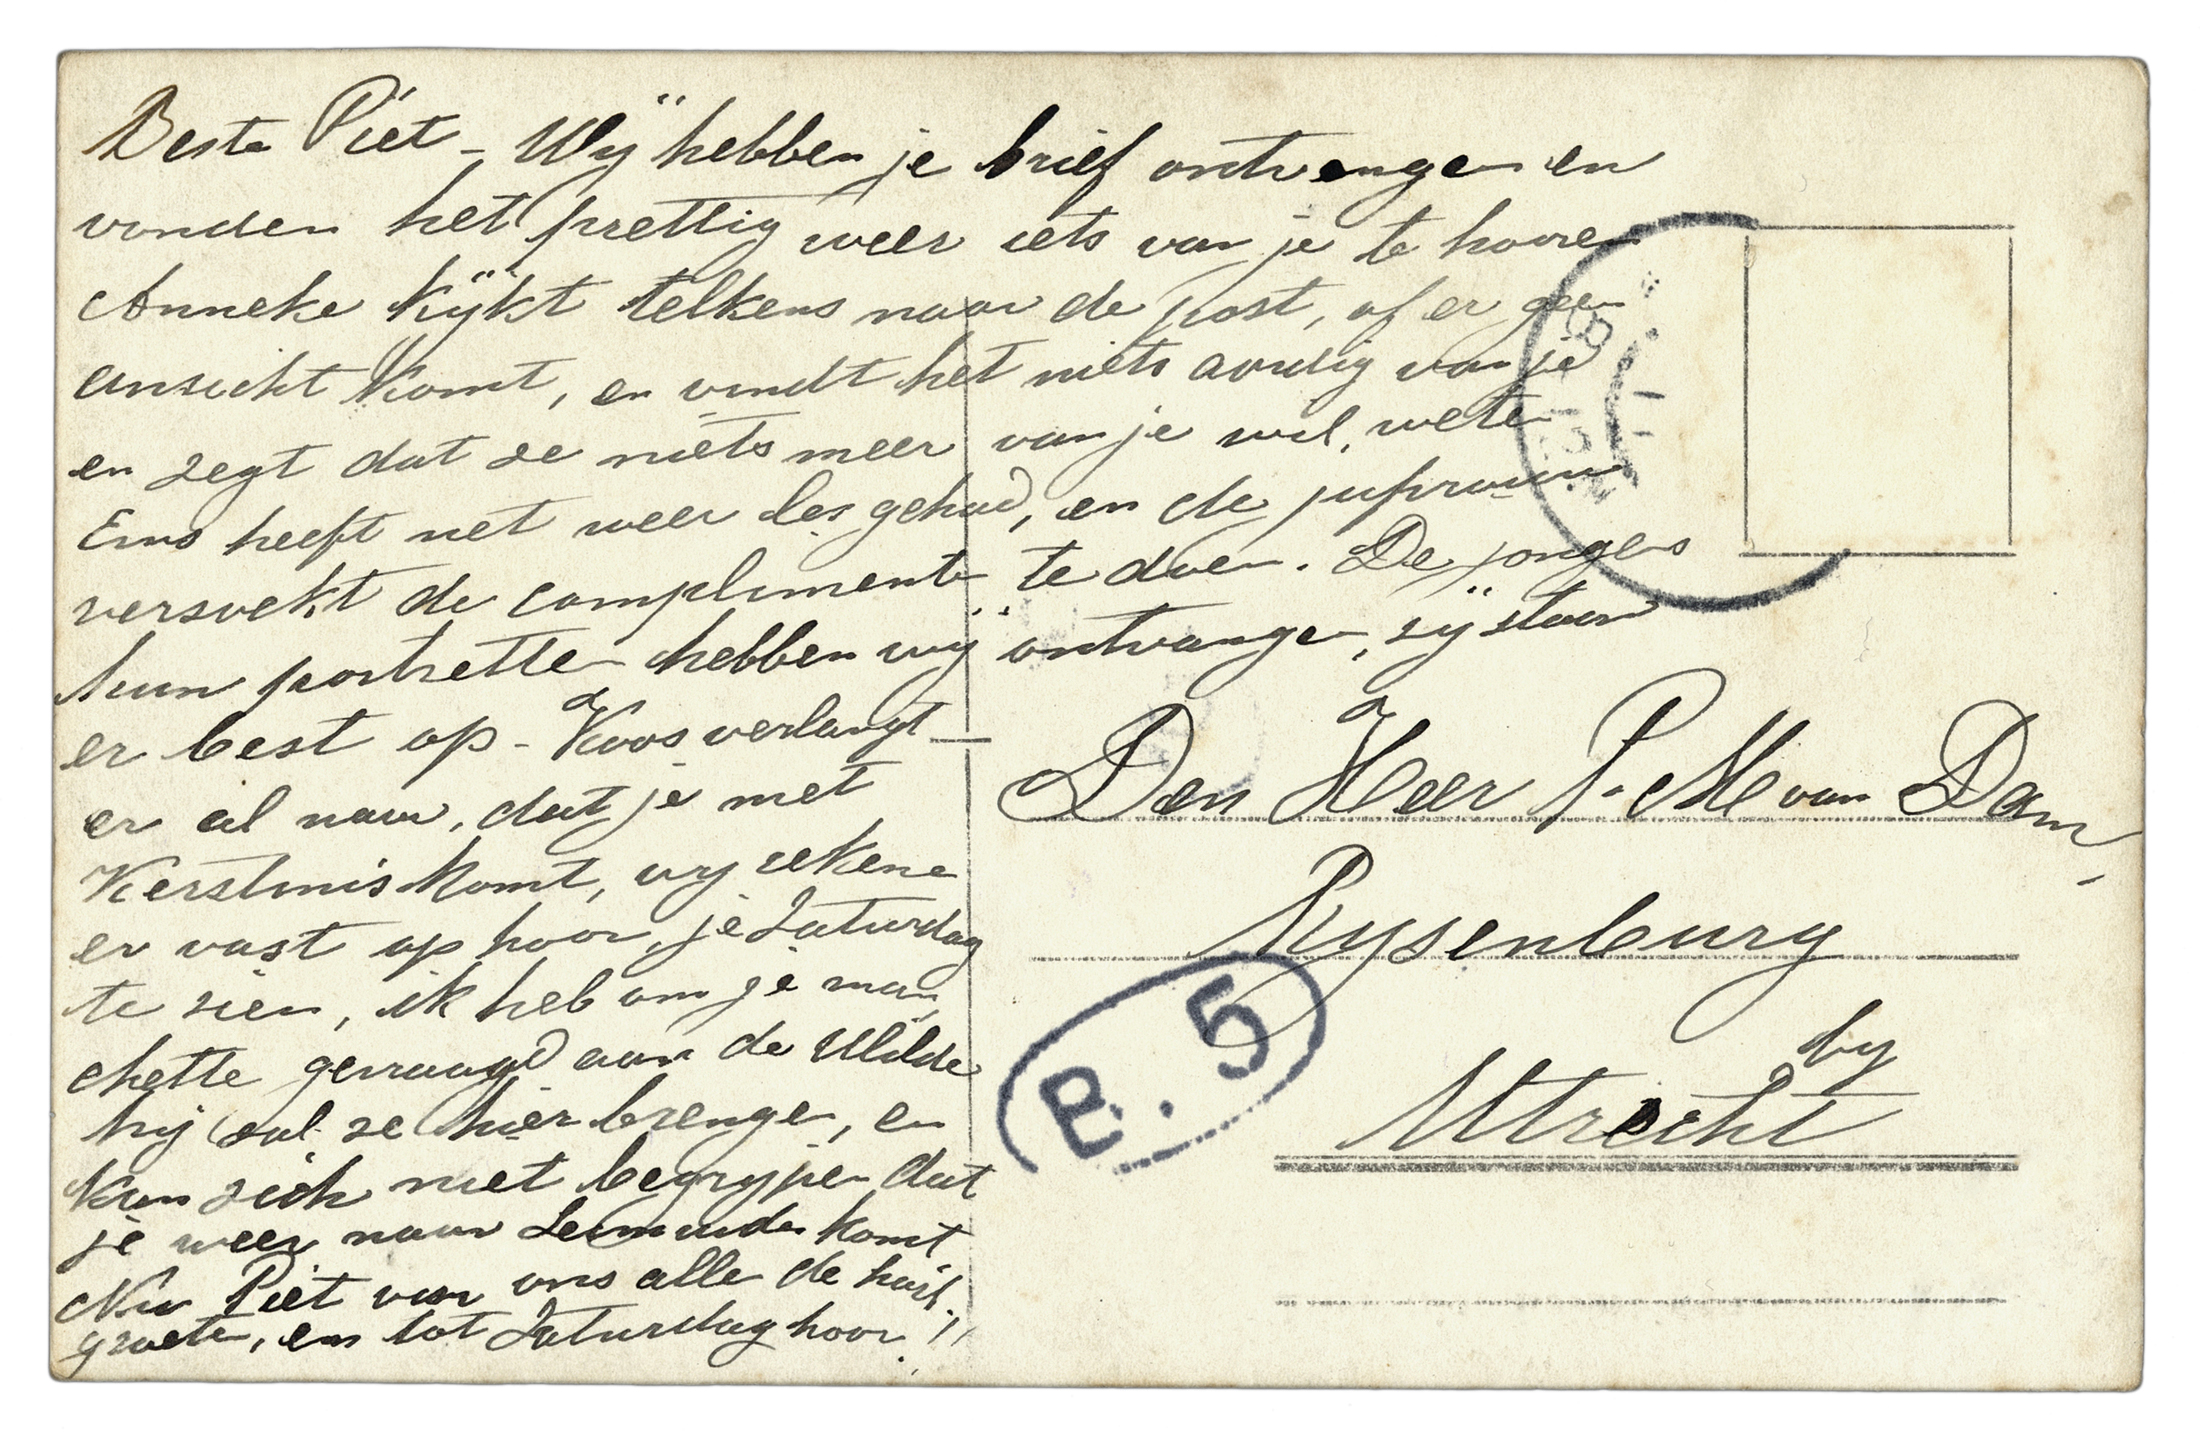 Beste Piet – Wÿ hebben je brief ontvangen en
vonden het prettig weer iets van je te hooren
Anneke kÿkt telkens naar de post, of er geen
ansicht komt, en vindt het niets aardig van je
en zegt dat ze niets meer van je wil weten
heeft net weer les gehad, en de jufrouw
versoekt de complimenten te doen. De jongens
hun portretten hebben wÿ ontvangen, zÿ staan
er best op – Koos verlangt
er al naar, dat je met
Kerstmis komt, wy rekenen
er vast op hoor, je Zaturdag
te zien, ik heb om je man,,
chetten gevraagd aan de Wilde
hy zal ze hier brengen, en
kan zich niet begrypen dat
je weer naar komt
Nu Piet van ons alle de hart.
groeten, en tot Zaturdag hoor!!
Den Heer P. M van Dam,
Rysenburg
by
Utrecht
B. 5